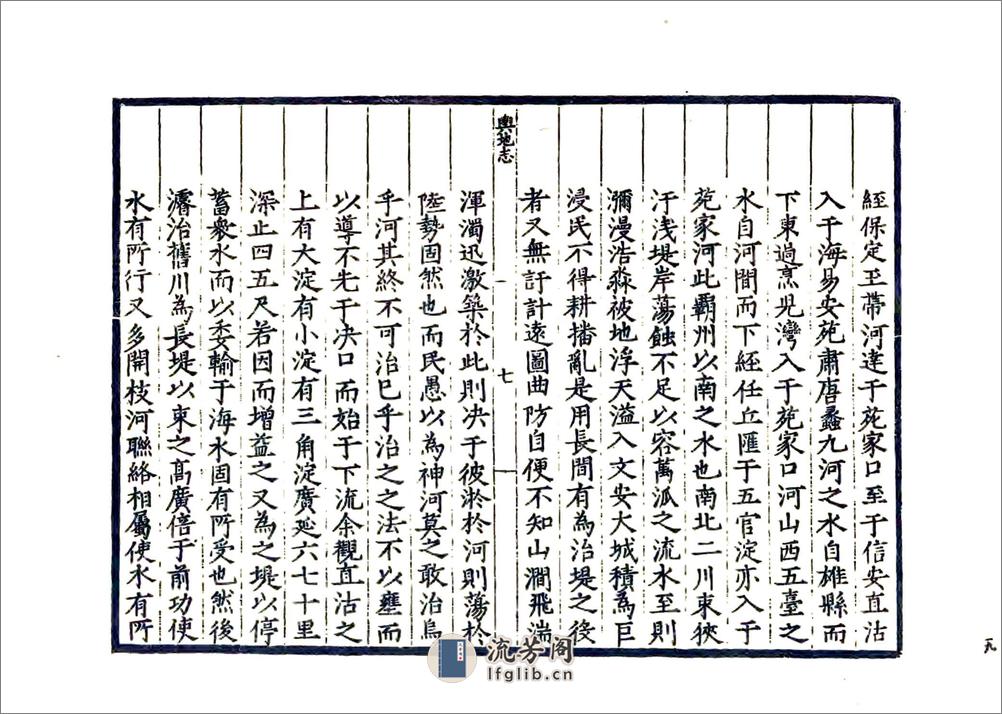 經保定玉帶河達于苑家口至于信安直沽
入于海易安苑肅唐蠡九河之水自雄縣而
下東過烹兒灣入于苑家口河山西五臺之
水自河間而下經任丘匯于五官淀亦入于
苑家河此霸州以南之水也南北二川東狹
汙淺堤岸蕩蝕不足以容萬派之流水至則
瀰漫浩淼被地浮天溢入文安大城積為巨
浸民不得耕播亂是用長間有為治堤之役
者又無訏計遠圖曲防自便不知山澗飛湍
輿地志
七
渾濁迅激築於此則决于彼淤於河則蕩於
陸勢固然也而民愚以為神河莫之敢治烏
乎河其終不可治巳乎治之之法不以壅而
以導不先于决口而始于下流余觀直沽之
上有大淀有小淀有三角淀廣延六七十里
深止四五尺若因而增益之又為之堤以停
蓄衆水而以委輸于海水固有所受也然後
濬治舊川為長堤以束之高廣倍于前功使
水有所行又多開枝河聯絡相屬使水有所
一九
流芳阁
lfglib.cn